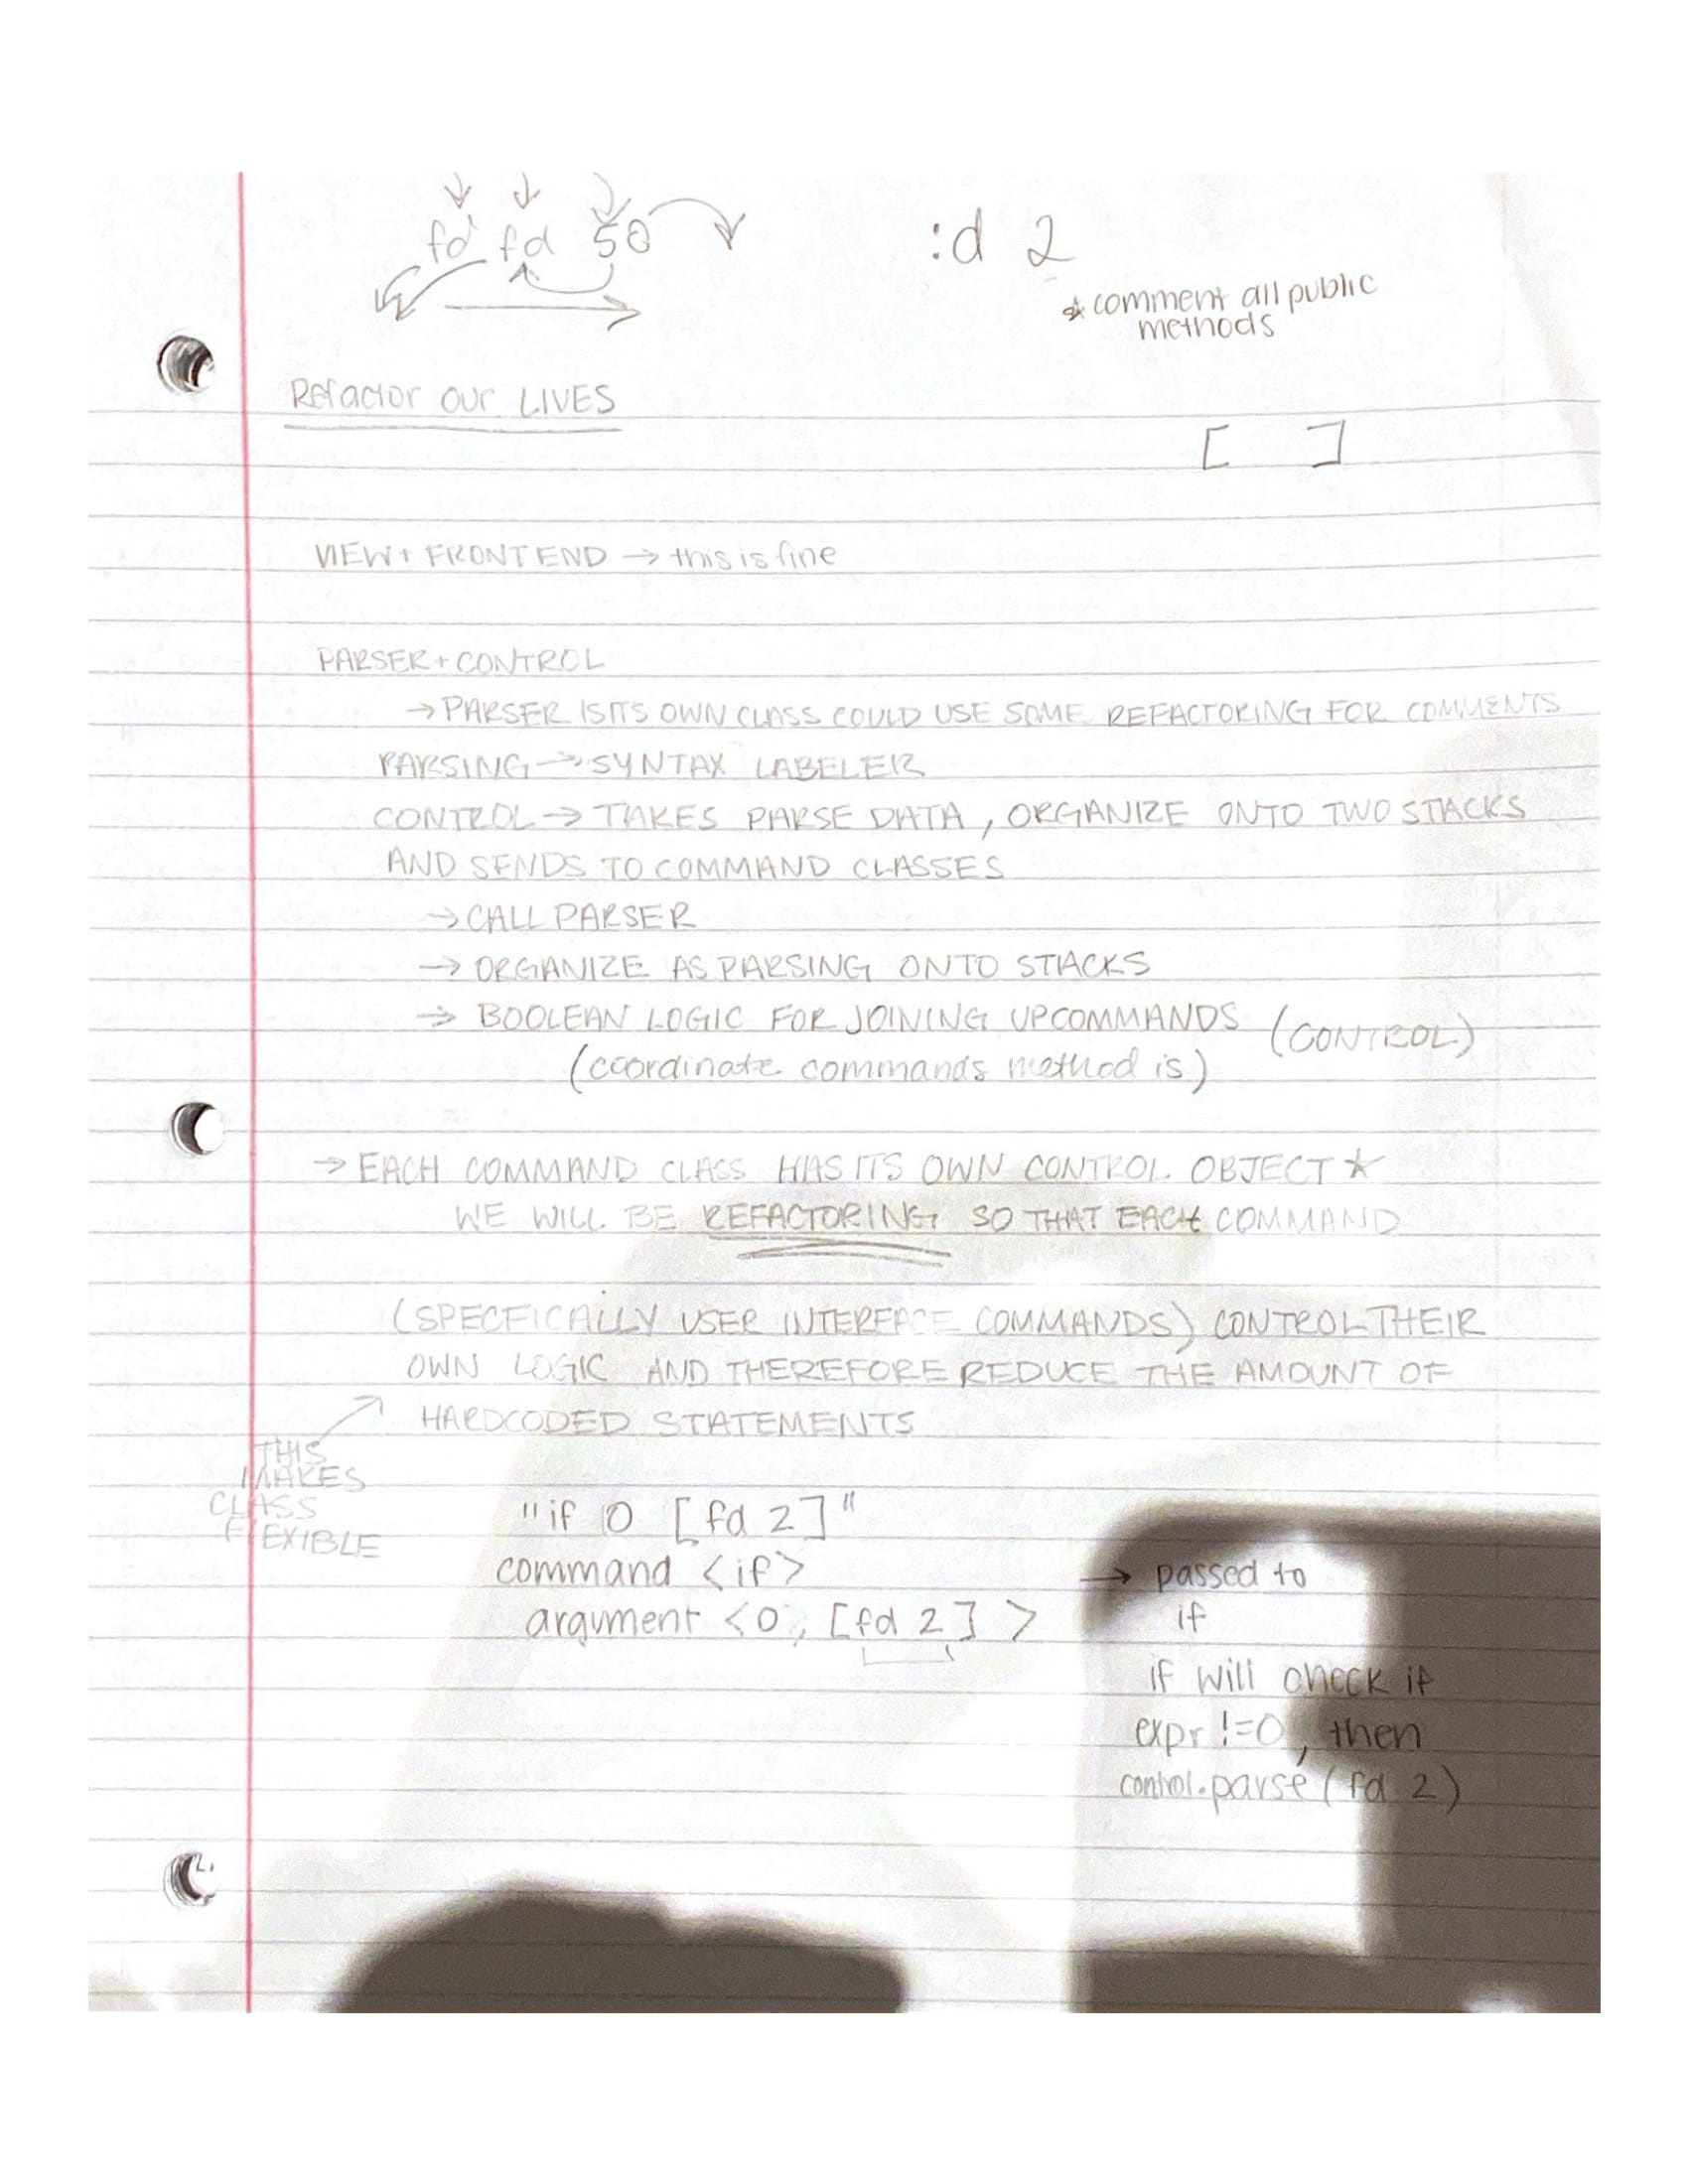 fd fd 50
:d 2
* comment all public
methods
Refactor our LIVES
[ ]
VIEW + FRONTEND → this is fine
PARSER + CONTROL
→ PARSER IS ITS OWN CLASS COULD USE SOME REFACTORING FOR COMMENTS
PARSING → SYNTAX LABELER
CONTROL → TAKES PARSE DATA, ORGANIZE ONTO TWO STACKS
AND SENDS TO COMMAND CLASSES
→ CALL PARSER
→ ORGANIZE AS PARSING ONTO STACKS
→ BOOLEAN LOGIC FOR JOINING UP COMMANDS (CONTROL)
(coordinate commands method is)
→ EACH COMMAND CLASS HAS ITS OWN CONTROL OBJECT ★
WE WILL BE REFACTORING SO THAT EACH COMMAND
(SPECFICALLY USER INTERFACE COMMANDS) CONTROL THEIR
OWN LOGIC AND THEREFORE REDUCE THE AMOUNT OF
HARDCODED STATEMENTS
THIS
MAKES
CLASS
FLEXIBLE
"if 0 [fd 2]"
command <if>
argument <0, [fd 2] >
→ passed to
if
if will check if
expr !=0, then
control.parse(fd 2)